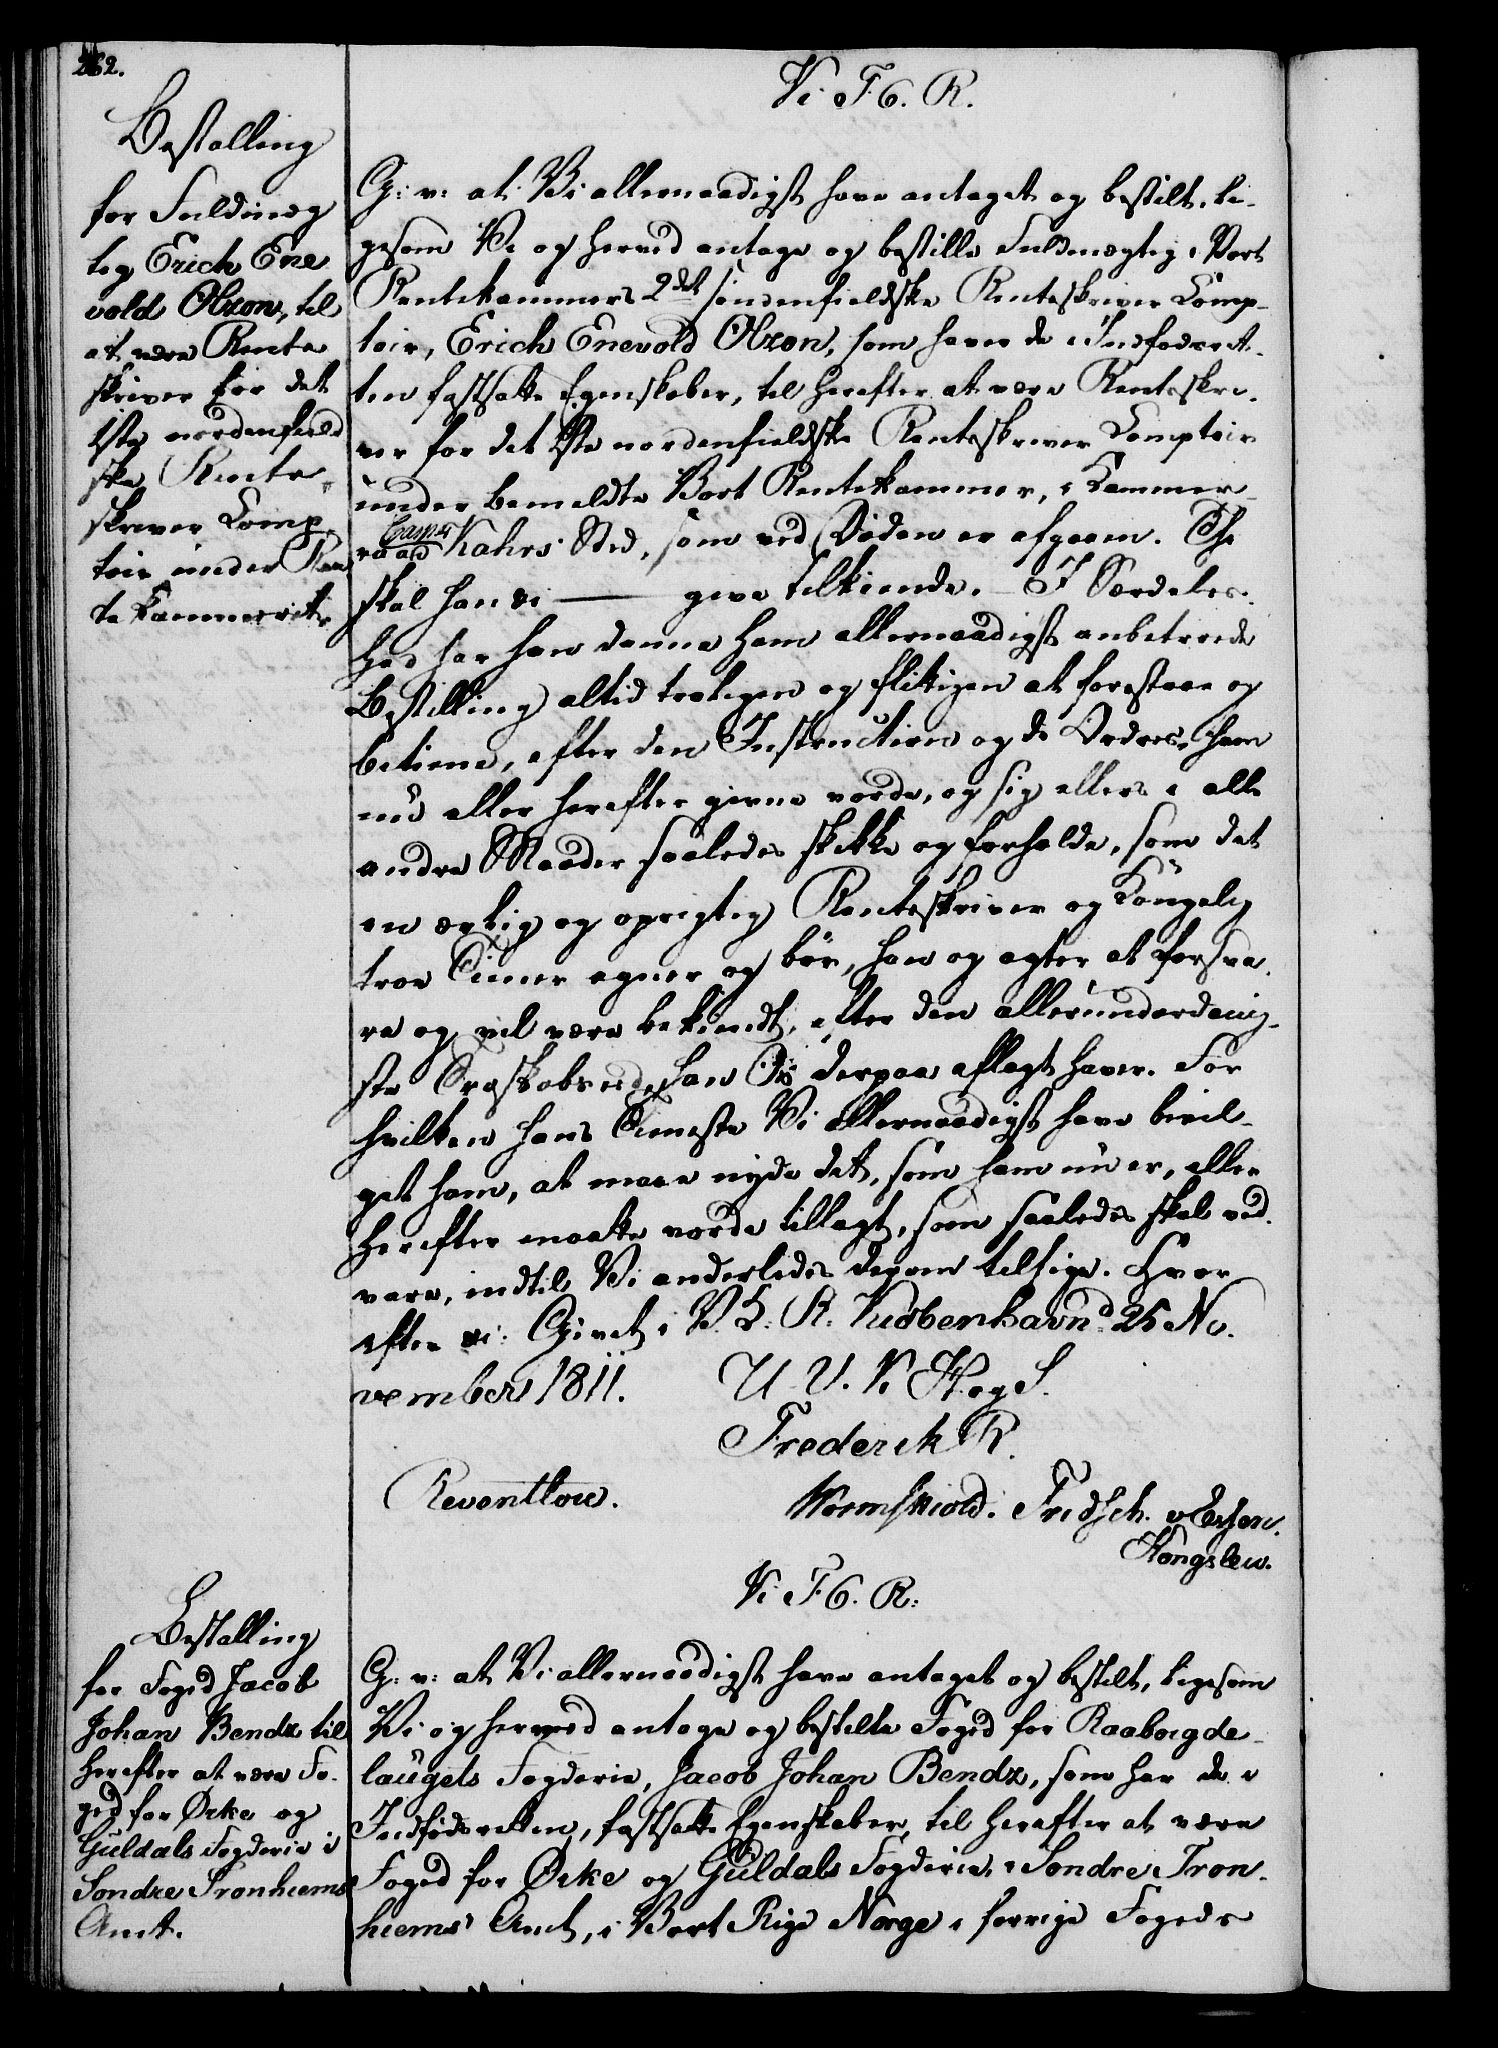 262.
Bestalling
for Fuldmæg
tig Erich Ene
vold Olzon, til
at være Rente
skriver for det
1ste nordenfield
ske Rente-
skriver Comp
toir under Ren
te Kammeret.
Vi F. 6. R.
G: v: at Vi allernaadigst have antaget og bestilt, li-
gesom Vi og herved antage og bestille Fuldmægtig i Vort
Rentekammers 2det søndenfieldske Renteskriver Comp-
toir, Erich Enevold Olzon, som haver de i Indfødsret-
ten fastsatte Egenskaber, til herefter at være Renteskri-
ver for det 1ste nordenfieldske Renteskriver Comptoir
under bemeldte Vort Rentekammer, i Kammer-
raad Casper Kahrs Sted, som ved Døden er afgaaen. Thi
skal han &c ——— give tilkiende. I Særdeles-
hed har han denne ham allernaadigst anbetroede
Bestilling altid troeligen og flittigen at forestaae og
betiene, efter den Instruction og de Ordres, ham
nu eller herefter givne vorde, og sig ellers i alle
andre Maader saaledes skikke og forholde, som det
en ærlig og oprigtig Renteskriver og Kongelig
troe Tiener egner og bør, han og agter at forsva-
re og vil være bekiendt, efter den allerunderdanig-
ste Troskabs eed, han Os derpaa aflagt haver. For
hvilken hans Tieneste Vi allernaadigst have bevil-
get ham, at maae nyde det, som ham nu er, eller
herefter maatte vorde tillagt, som saaledes skal ved-
vare, indtil Vi anderledes derom tilsige. Hvor
efter &c: Givet i V. K. R. Kiøbenhavn d 25 No-
vember 1811. U. V. K. H. og S.
Frederik R.
Reventlow.
Wormskiold. Fridsch. v Essen.
Kongslew.
Bestalling
for Foged Jacob
Johan Bendz til
herefter at være Fo-
ged for Orke og
Guldals Fogderie i
Søndre Tronhiems
Amt.
Vi F. 6. R:
G: v: at Vi allernaadigst have antaget og bestilt, ligesom
Vi og herved antage og bestille Foged for Raabøigde-
laugets Fogderie, Jacob Johan Bendz, som har de i
Indfødsretten, fastsatte Egenskaber, til herefter at være
Foged for Orke og Guldals Fogderie, i Søndre Tron-
hiems Amt, i Vort Rige Norge i forrige Fogeds